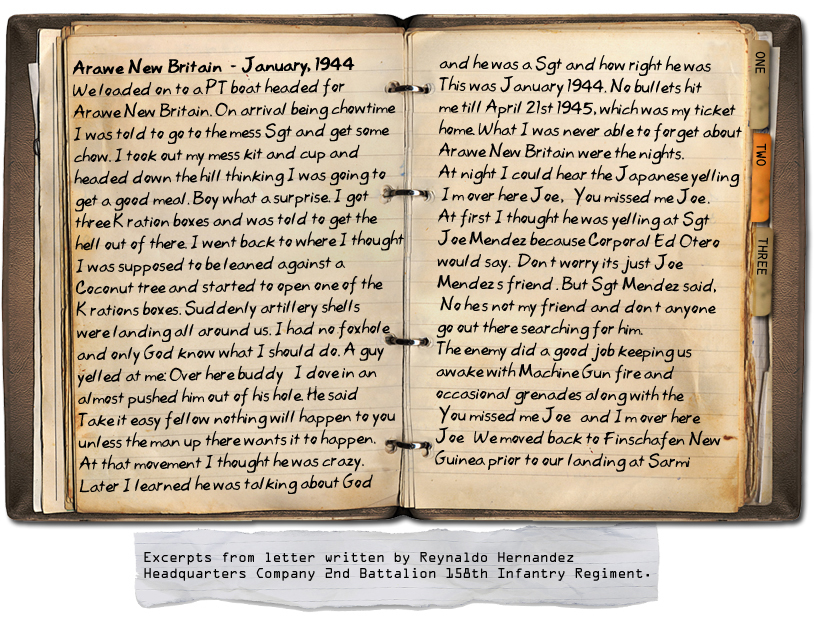 Arawe New Britain - January, 1944
We loaded on to a PT boat headed for
Arawe New Britain. On arrival being chowtime
I was told to go to the mess Sgt and get some
chow. I took out my mess kit and cup and
headed down the hill thinking I was going to
get a good meal. Boy what a surprise. I got
three K ration boxes and was told to get the
hell out of there. I went back to where I thought
I was supposed to be leaned against a
Coconut tree and started to open one of the
K rations boxes. Suddenly artillery shells
were landing all around us. I had no foxhole
and only God know what I should do. A guy
yelled at me: Over here buddy I dove in an
almost pushed him out of his hole. He said
Take it easy fellow nothing will happen to you
unless the man up there wants it to happen.
At that movement I thought he was crazy.
Later I learned he was talking about God
and he was a Sgt and how right he was
This was January 1944. No bullets hit
me till April 21st 1945, which was my ticket
home. What I was never able to forget about
Arawe New Britain were the nights.
At night I could hear the Japanese yelling
I m over here Joe, You missed me Joe.
At first I thought he was yelling at Sgt
Joe Mendez because Corporal Ed Otero
would say. Don t worry its just Joe
Mendez s friend. But Sgt Mendez said,
No hes not my friend and don t anyone
go out there searching for him.
The enemy did a good job keeping us
awake with Machine Gun fire and
occasional grenades along with the
You missed me Joe and I m over here
Joe We moved back to Finschafen New
Guinea prior to our landing at Sarmi
ONE
TWO
THREE
Excerpts from letter written by Reynaldo Hernandez
Headquarters Company 2nd Battalion 158th Infantry Regiment.